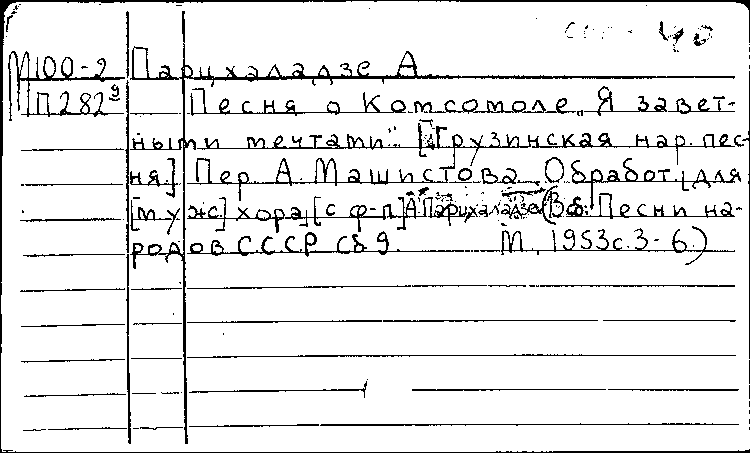 40
М100-2 Парцхаладзе, А.
П282⁹ Песня о Комсомоле „Я завет-
ными мечтами". [Грузинская нар. пес-
ня.] Пер. А. Машистова. Обработ. [для
[муж.] хора] [с ф-п.] А. Парцхаладзе (В сб.: Песни на-
родов СССР Сб 9. М., 1953 с. 3-6.)